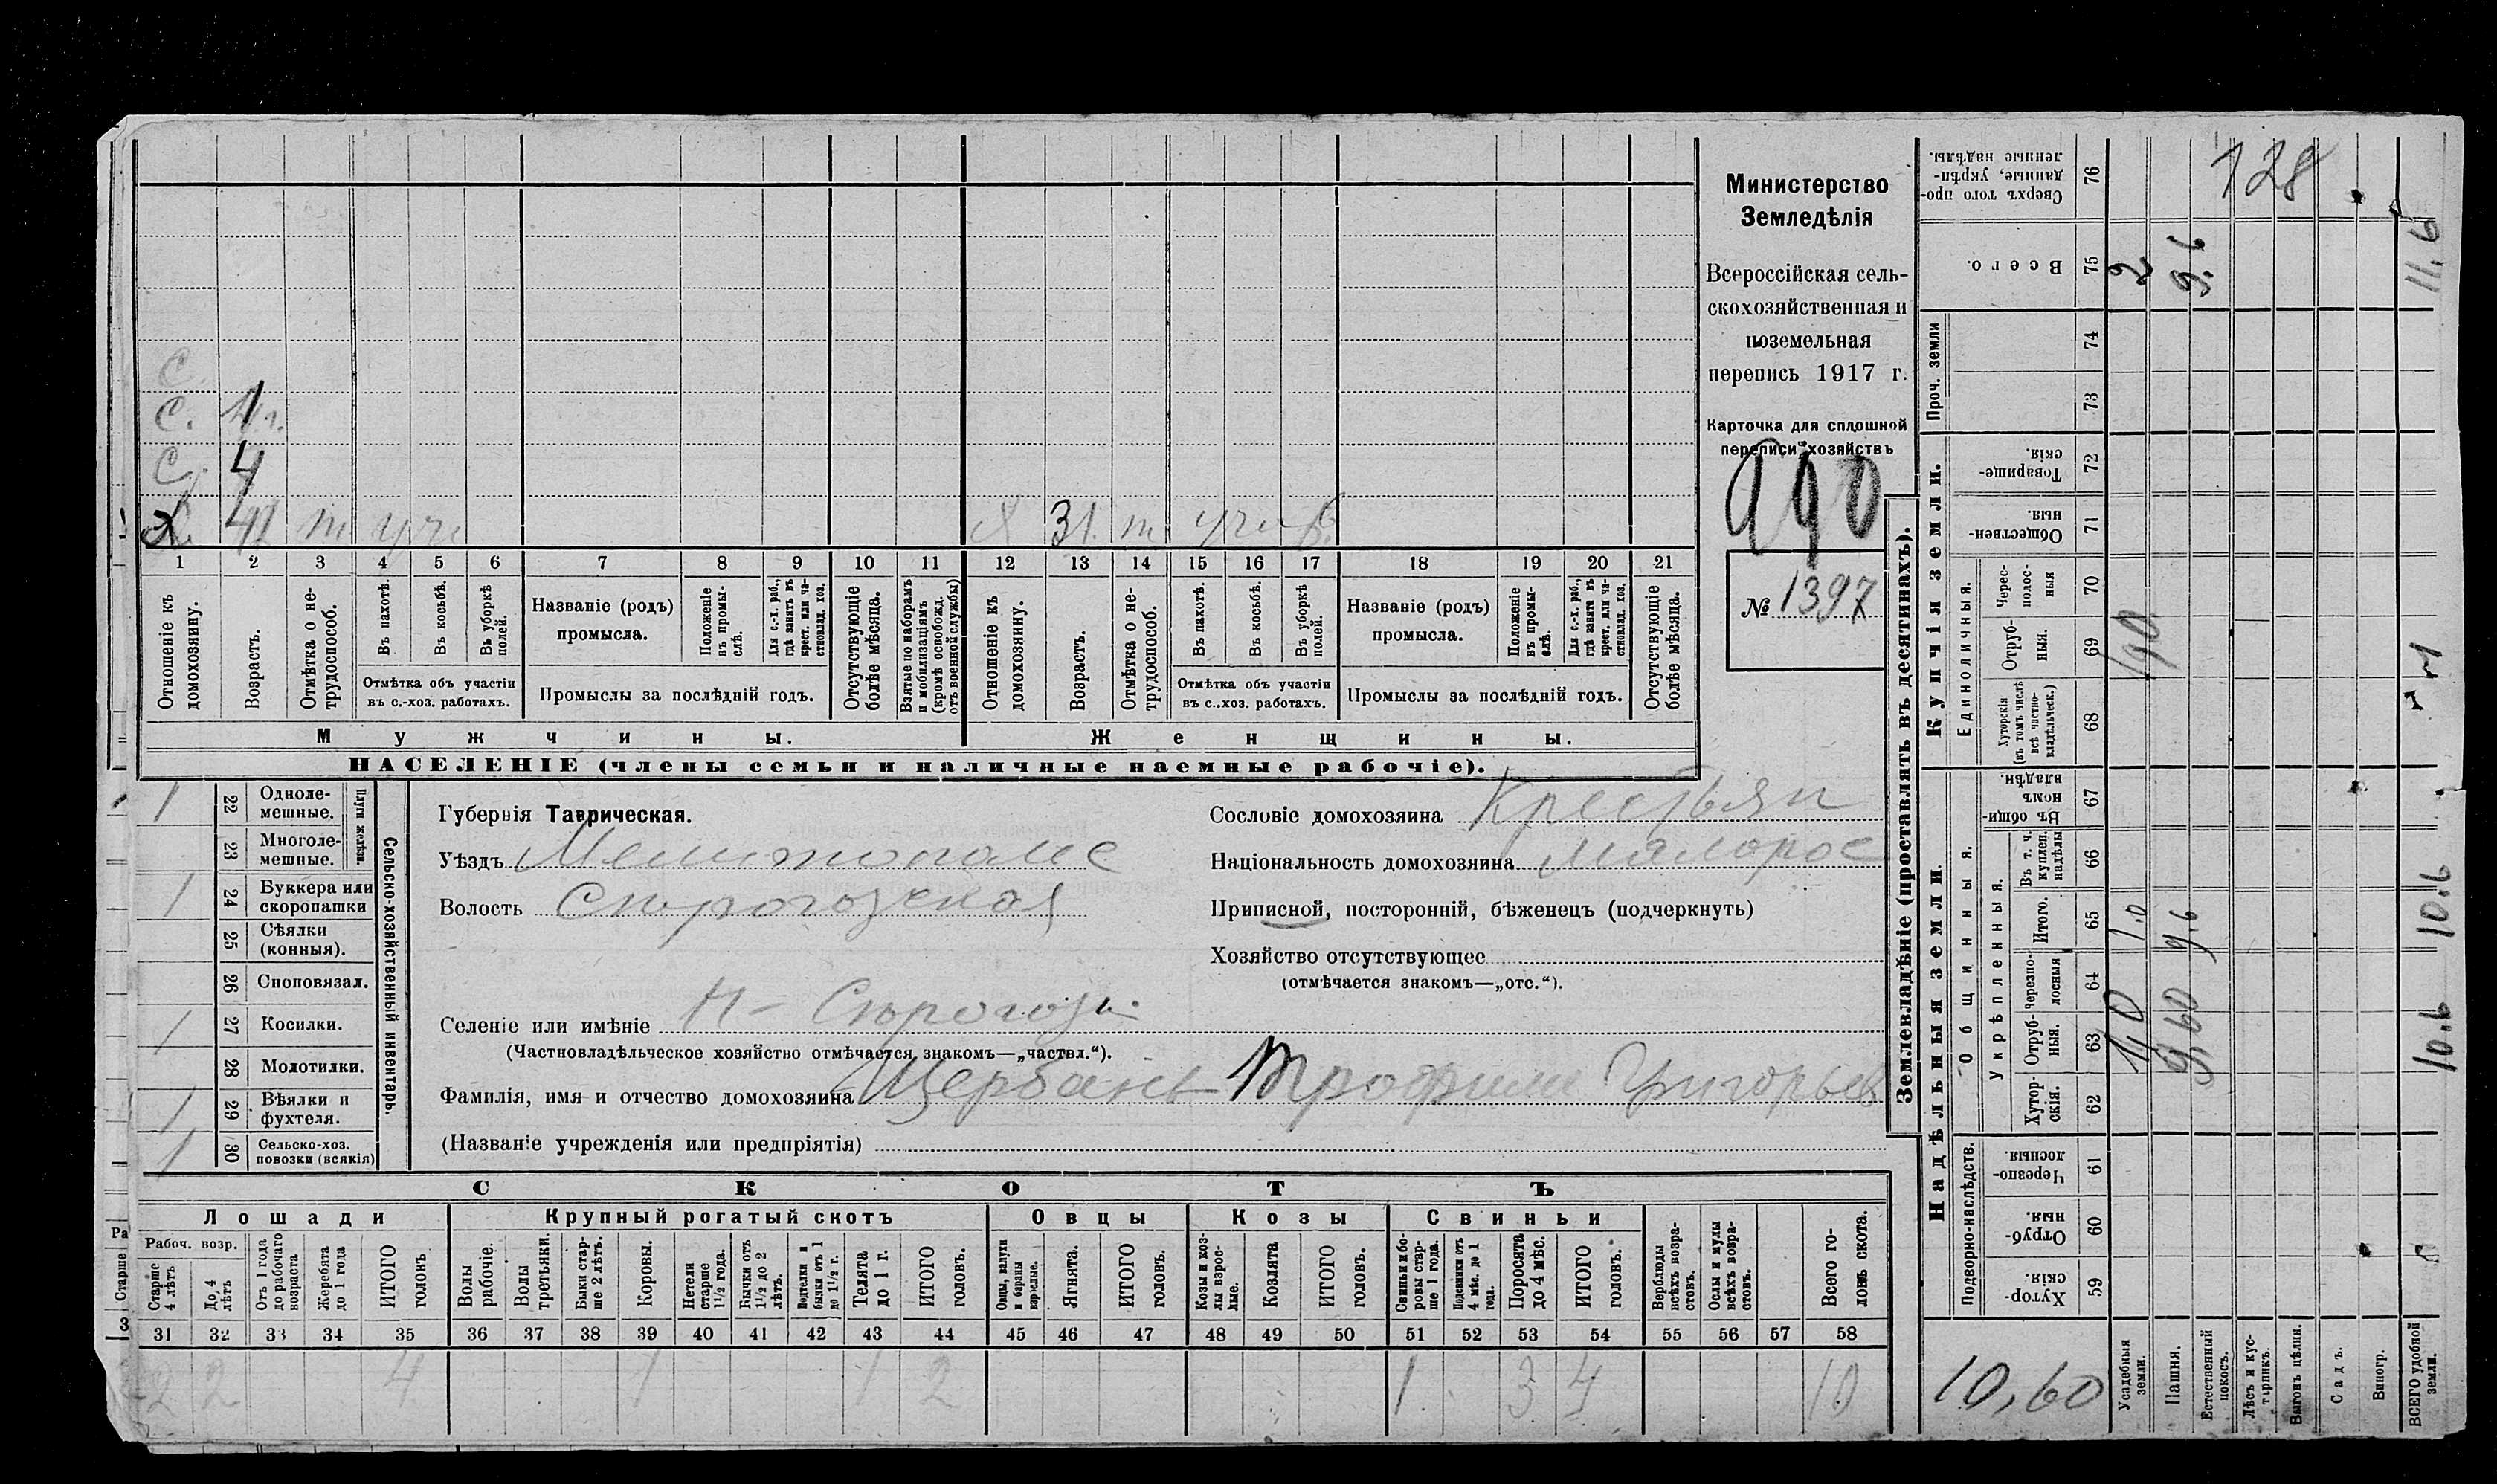 Министерство
Земледѣлія
Всероссійская сель-
скохозяйственная и
поземельная
перепись 1917 г.
Карточка для сплошной
переписи хозяйствъ
990
№ 1397
С
С. 1 г.
С. 4
Х. 41 т
31. т.
1 2 3 4 5 6 7 8 9 10 11 12 13 14 15 16 17 18 19 20 21
Отношеніе къ домохозяину.
Возрастъ.
Отмѣтка о не-трудоспособ.
Въ пахотѣ.
Въ косьбѣ.
Въ уборкѣ полей.
Отмѣтка объ участіи
въ с.-хоз. работахъ.
Названіе (родъ)
промысла.
Положеніе въ промы-слѣ.
Для с.-х. раб., гдѣ занятъ въ крест. или ча-стновлад. хоз.
Промыслы за послѣдній годъ.
Отсутствующіе болѣе мѣсяца.
Взятые по наборамъ и мобилизаціямъ (кромѣ освобожд. отъ военной службы)
Отношеніе къ домохозяину.
Возрастъ.
Отмѣтка о не-трудоспособ.
Въ пахотѣ.
Въ косьбѣ.
Въ уборкѣ полей.
Отмѣтка объ участіи
въ с..хоз. работахъ.
Названіе (родъ)
промысла.
Положеніе въ промы-слѣ.
Для с.-х. раб., гдѣ занята въ крест. или ча-стновлад. хоз.
Промыслы за послѣдній годъ.
Отсутствующіе болѣе мѣсяца.
Мужчины. Женщины.
НАСЕЛЕНІЕ (члены семьи и наличные наемные рабочіе).
Сельско-хозяйственный инвентарь.
Плуги желѣзн.
1 22 Одноле-мешные.
23 Многоле-мешные.
1 24 Буккера или скоропашки
25 Сѣялки (конныя).
26 Сноповязал.
1 27 Косилки.
28 Молотилки.
1 29 Вѣялки и фухтеля.
1 30 Сельско-хоз. повозки (всякія)
Губернія Таврическая.
Уѣздъ Мелитопольс
Волость Сѣрогозская
Селеніе или имѣніе Н-Сѣрогозы
(Частновладѣльческое хозяйство отмѣчается знакомъ—„частвл.“).
Фамилія, имя и отчество домохозяина Щербань Трофим Григорьев
(Названіе учрежденія или предпріятія)
Сословіе домохозяина Крестьян
Національность домохозяина малорос
Приписной, посторонній, бѣженецъ (подчеркнуть)
Хозяйство отсутствующее
(отмѣчается знакомъ—„отс.“).
СКОТЪ
Лошади Крупный рогатый скотъ Овцы Козы Свиньи
Рабоч. возр.
Старше 4 лѣтъ
До 4 лѣтъ
Отъ 1 года до рабочаго возраста
Жеребята до 1 года
ИТОГО головъ
Волы рабочіе.
Волы третьяки.
Быки стар-ше 2 лѣтъ.
Коровы.
Нетели старше 1½ года.
Бычки отъ 1½ до 2 лѣтъ.
Подтелки и бычки отъ 1 до 1½ г.
Телята до 1 г.
ИТОГО головъ.
Овцы, валухи и бараны взрослые.
Ягнята.
ИТОГО головъ.
Козы и коз-лы взрос-лые.
Козлята
ИТОГО головъ.
Свиньи и бо-ровы стар-ше 1 года.
Подсвинки отъ 4 мѣс. до 1 года.
Поросята до 4 мѣс.
ИТОГО головъ.
Верблюды всѣхъ возра-стовъ.
Ослы и мулы всѣхъ возра-стовъ.
Всего го-ловъ скота.
31 32 33 34 35 36 37 38 39 40 41 42 43 44 45 46 47 48 49 50 51 52 53 54 55 56 57 58
2 2 4 1 1 2 1 3 4 10
Землевладѣніе (проставлять въ десятинахъ).
Надѣльныя земли.
Купчія земли.
Проч. земли
Подворно-наслѣдств.
Общинныя.
Укрѣпленныя.
Единоличныя.
Хутор-скія. 59
Отруб-ныя. 60
Черезпо-лосныя. 61
Хутор-скія. 62
Отруб-ныя. 63
Черезпо-лосныя 64
Итого. 65
Въ т. ч. куплен. надѣлы 66
Въ общи-номъ владѣн. 67
Хуторскія (въ томъ числѣ всѣ частно-владѣльческ.) 68
Отруб-ныя. 69
Черес-полос-ныя 70
Обществен-ныя. 71
Товарище-скія. 72
73
74
Всего. 75
Сверхъ того про-данные, укрѣп-ленные надѣлы. 76
128
2 9.6 11.6
1,0 9.6 10.6
1,0 9,60 10.6
10,60
Усадебныя земли.
Пашня.
Естественный покосъ.
Лѣсъ и кус-тарникъ.
Выгонъ цѣлин.
Садъ.
Виногр.
ВСЕГО удобной земли.